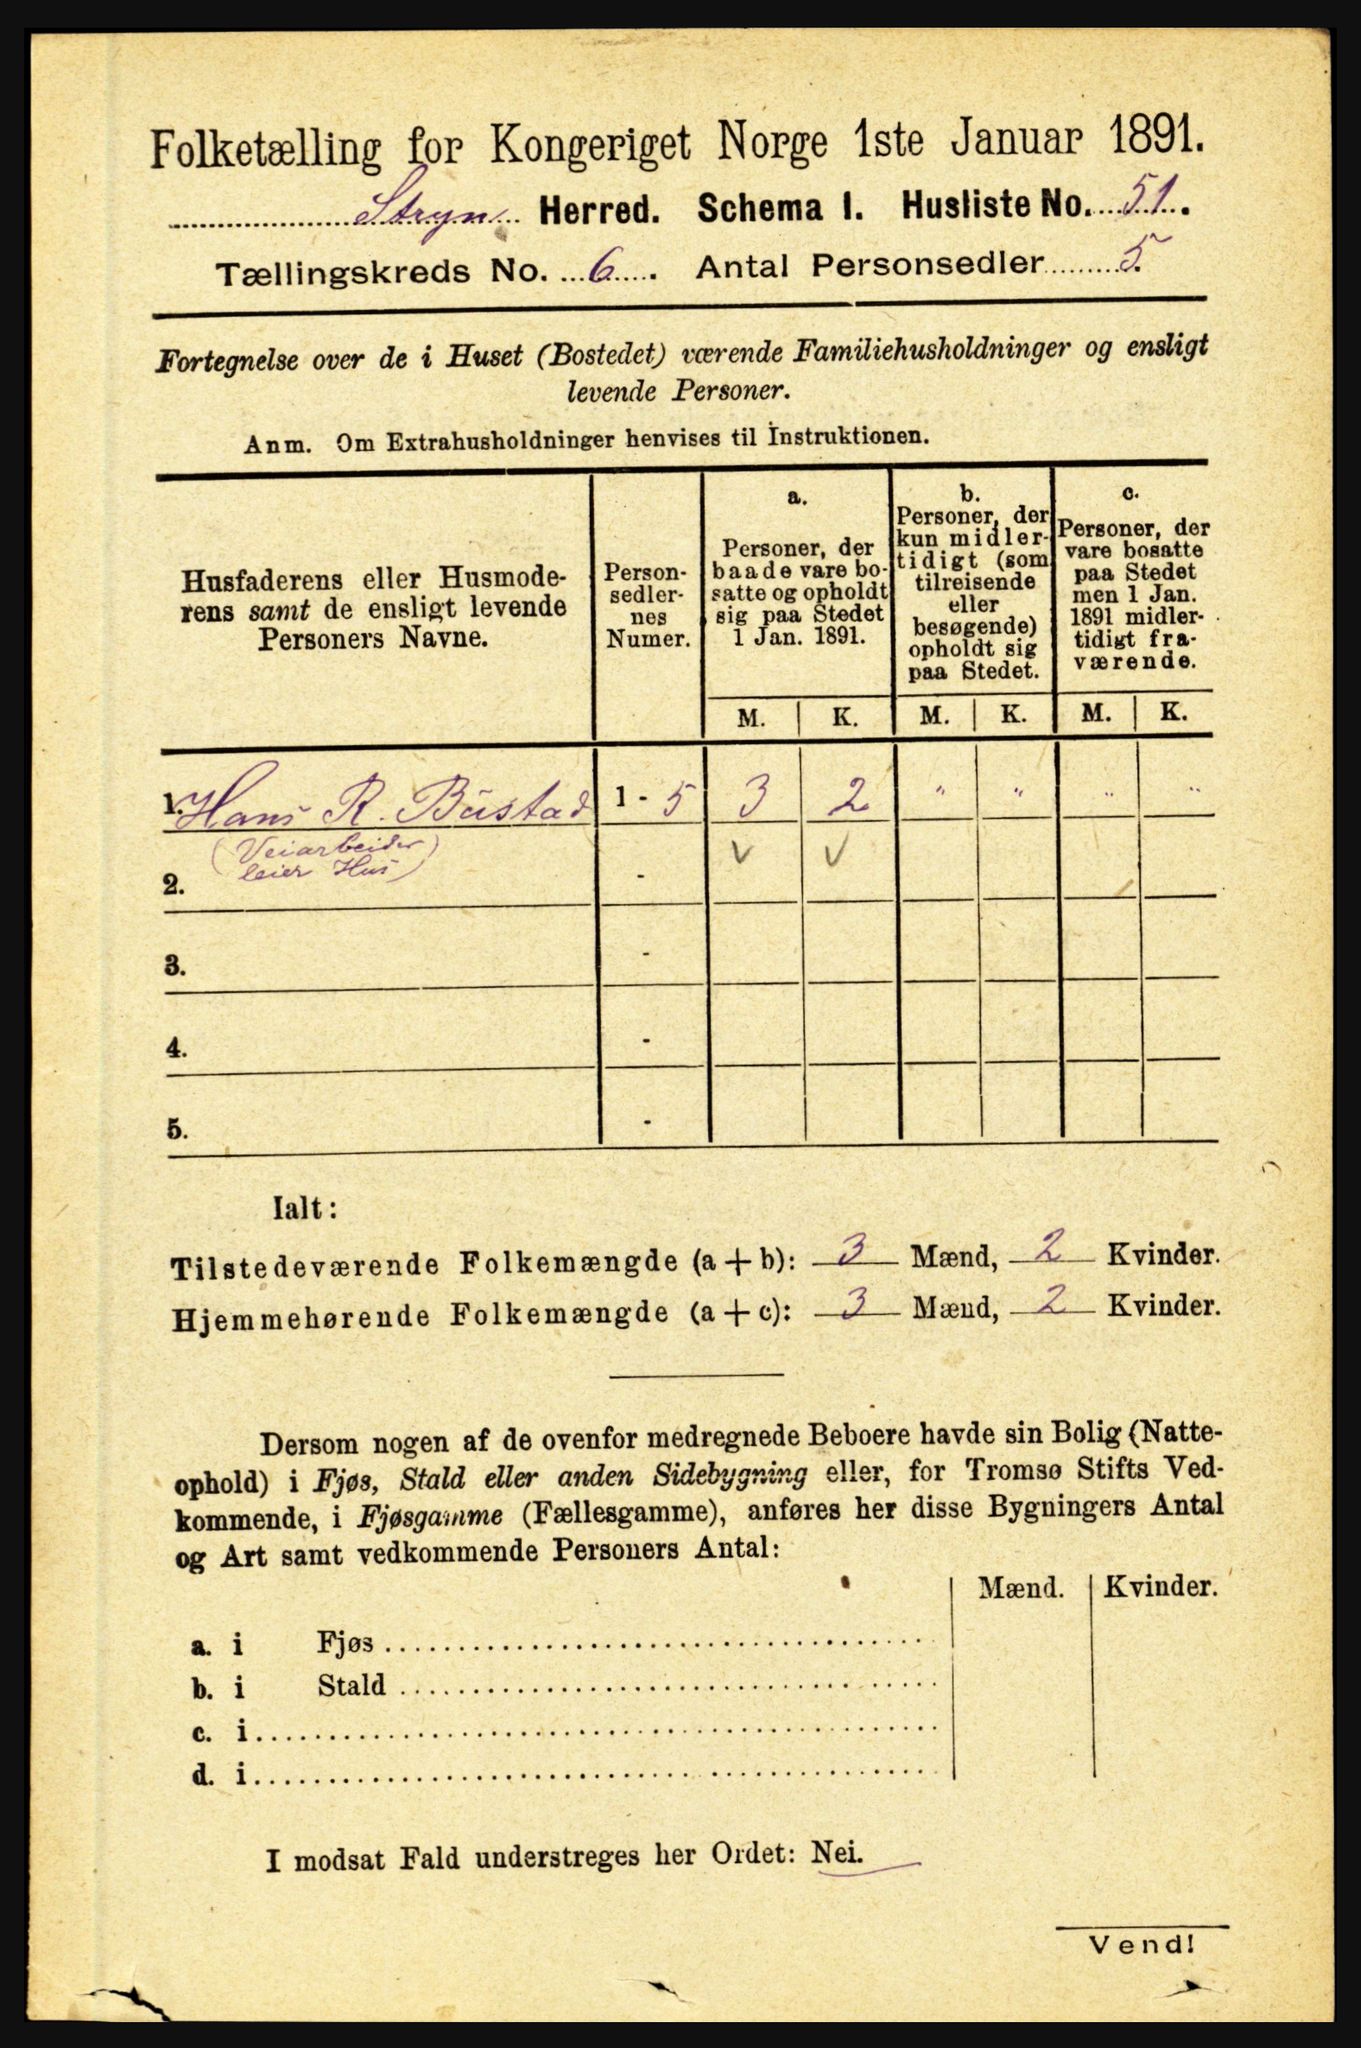 Folketælling for Kongeriget Norge 1ste Januar 1891.
Stryn Herred. Schema I. Husliste No. 51.
Tællingskreds No. 6. Antal Personsedler 5.
Fortegnelse over de i Huset (Bostedet) værende Familiehusholdninger og ensligt
levende Personer.
Anm. Om Extrahusholdninger henvises til Instruktionen.
Husfaderens eller Husmode-
rens samt de ensligt levende
Personers Navne.
Person-
sedler-
nes
Numer.
a.
Personer, der
baade vare bo-
satte og opholdt
sig paa Stedet
1 Jan. 1891.
b.
Personer, der
kun midler-
tidigt (som
tilreisende
eller
besøgende)
opholdt sig
paa Stedet.
c.
Personer, der
vare bosatte
paa Stedet
men 1 Jan.
1891 midler-
tidigt fra-
værende.
M. K. M. K. M. K.
1. Hans R. Bustad 1 - 5 3 2 " " " "
(Veiarbeider
leier Hus)
2. -
3. -
4. -
5. -
Ialt:
Tilstedeværende Folkemængde (a + b): 3 Mænd, 2 Kvinder.
Hjemmehørende Folkemængde (a + c): 3 Mænd, 2 Kvinder.
Dersom nogen af de ovenfor medregnede Beboere havde sin Bolig (Natte-
ophold) i Fjøs, Stald eller anden Sidebygning eller, for Tromsø Stifts Ved-
kommende, i Fjøsgamme (Fællesgamme), anføres her disse Bygningers Antal
og Art samt vedkommende Personers Antal:
Mænd. Kvinder.
a. i Fjøs
b. i Stald
c. i
d. i
I modsat Fald understreges her Ordet: Nei.
Vend!